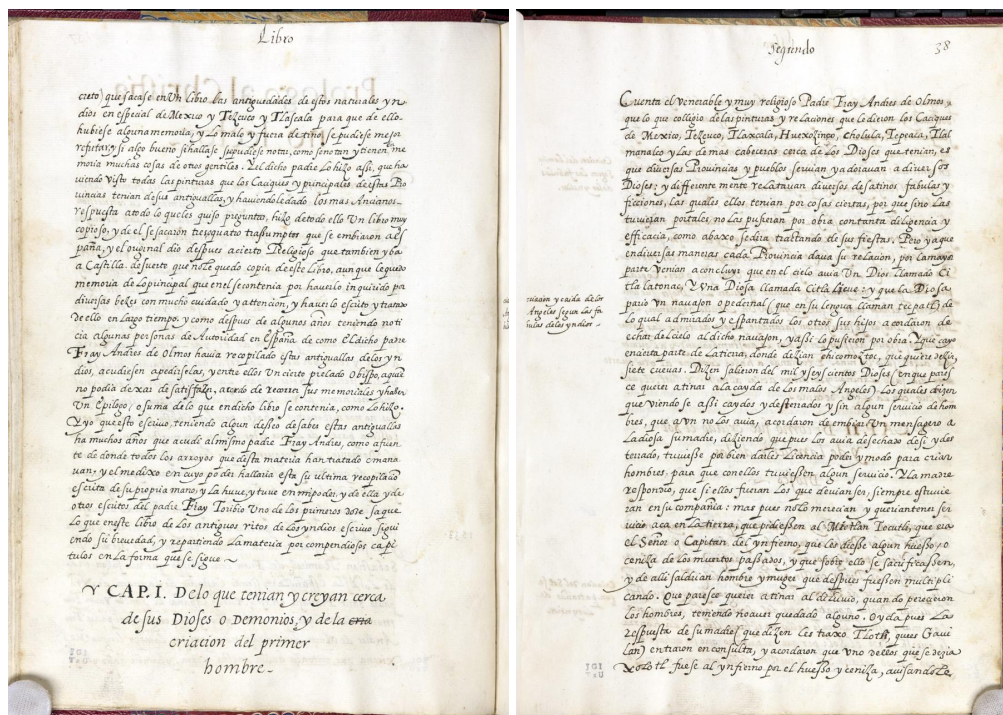 Libro
creto) que sacase en Un libro las antiguedades de estos naturales yn
dios en especial de Mexico y Tezcuco y Tlascala para que de ello
hubiese alguna memoria, y Lo malo y fuera de tino se pudiese mejor
refutar, y si algo bueno se hallase se pudiese notar, como se notan y tienen, me
moria muchas cosas de otros gentiles. Y el dicho padre Lo hizo assi, que ha
viendo visto todas las pinturas que los Caciques y principales de estas Pro
vincias tenian de sus antiguallas, y haviendole dado los mas Ancianos
respuesta a todo lo que les quiso preguntar, hizo de todo ello Un libro muy
copioso, y de el se sacaron tres, quatro trassumptos que se embiaron a Es
paña, y el original dio despues a cierto Religioso que tambien yba
a Castilla. de suerte que no le quedo copia de este Libro, aun que le quedo
memoria de Lo principal que en el se contenia por haverlo inquirido por
diversas bezes con mucho cuidado y attencion, y haverlo escrito y tratax
de ello en Largo tiempo. y como despues de algunos años teniendo noti
cia algunas personas de Autoridad en España de como El dicho padre
Fray Andres de Olmos havia recopilado estas antiguallas de los yn
dios, acudiesen a pedirselas, y entre ellos Un cierto prelado Obispo, a quien
no podia dexar de satisfazer, acordo de recorrer sus memoriales y haber
Un Epilogo, o suma de lo que en dicho libro se contenia, como Lo hizo.
Y yo que esto escrivo, teniendo algun desseo de saber estas antiguallas
ha muchos años que acudi al mismo padre Fray Andres, como a fuen
te de donde todos los arroyos que desta materia han tratado emana
van; y el me dixo en cuyo poder hallaria esta su ultima recopilacio
escrita de su propria mano, y La huve, y tuve en mi poder, y de ella y de
otros escritos del padre Fray Toribio Uno de los primeros doze saque
Lo que en este libro de Los antiguos ritos de Los yndios escrivo sigui
endo su brevedad, y repartiendo La materia por compendiosos capi
tulos en La forma que se sigue ~
CAP. I. De lo que tenian y creyan cerca
de sus Dioses o Demonios, y de la cria
criacion del primer
hombre.-
Segundo 38
Cuenta el venerable y muy religioso Padre Fray Andres de Olmos,
que lo que colligio de las pinturas y relaciones que le dieron los Caciques
de Mexico, Tezcuco, Tlaxcala, Huexozinpo, Cholula, Tepeaca, Tlal
manalco y las de mas cabeceras cerca de Los Dioses que tenian, es
que diversas Provincias y pueblos servian y adoravan a diversos
Dioses: y differente mente relatavan diversos desatinos fabulas y
ficciones, las quales ellos tenian por cosas ciertas, por que sino Las
tuvieran por tales no Las pusieran por obra con tanta diligencia y
efficacia, como abaxo se dira tractando de sus fiestas. Pero ya que
en diversas maneras cada Provincia dava su relacion, por la mayor
parte venian a concluyr que en el cielo avia Un Dios llamado Ci
tla latonac, Y Una Diosa llamada Citla licue: y que La Diosa
pario Un navajon o pedernal (que en su lengua llaman tecpatl) de
lo qual admirados y espantados los otros sus hijos acordaron de
echar del cielo al dicho navajon, y assi lo pusieron por obra. Y que cayo
en cierta parte de La tierra, donde dezian chicomoztoc, que quiere dezir,
siete cuevas. Dizen salieron del mil y seyscientos Dioses (en que pares
ce querer atinar a la cayda de Los malos Angeles) Los quales dizen
que viendo se assi caydos y desterrados y sin algun servicio de hom
bres, que a un no los avia, acordaron de embiar Un mensagero a
La diosa su madre, diziendo que pues los avia desechado de si y des
terrado, tuviesse por bien darles Licencia poder y modo para criar
hombres, para que con ellos tuviessen algun servicio. Y La madre
respondio, que si ellos fueran Los que devian ser, siempre estuvie
ran en su compañia: mas pues no lo merecian y querian tener ser
vicio aca en La tierra, que pidiessen al Mictlan Tecutli, que era
el Señor o Capitan del ynfierno, que les diesse algun huesso, o
ceniza de Los muertos passados, y que sobre ello se sacrificassen,
y de alli saldrian hombre y muger que despues fuessen multipli
cando. Que paresce querer atinar al diluvio, quando perecieron
Los hombres, teniendo no aver quedado alguno. Oyda pues La
respuesta de su madre (que dizen les traxo Tlotli, ques Gavi
lan) entraron en consulta, y acordaron que Uno dellos que se dezia
Xolotl fuese al ynfierno por el huesso y ceniza, avisandole
criacion y caida de los
Angeles segun las fa
bulas de los yndios -